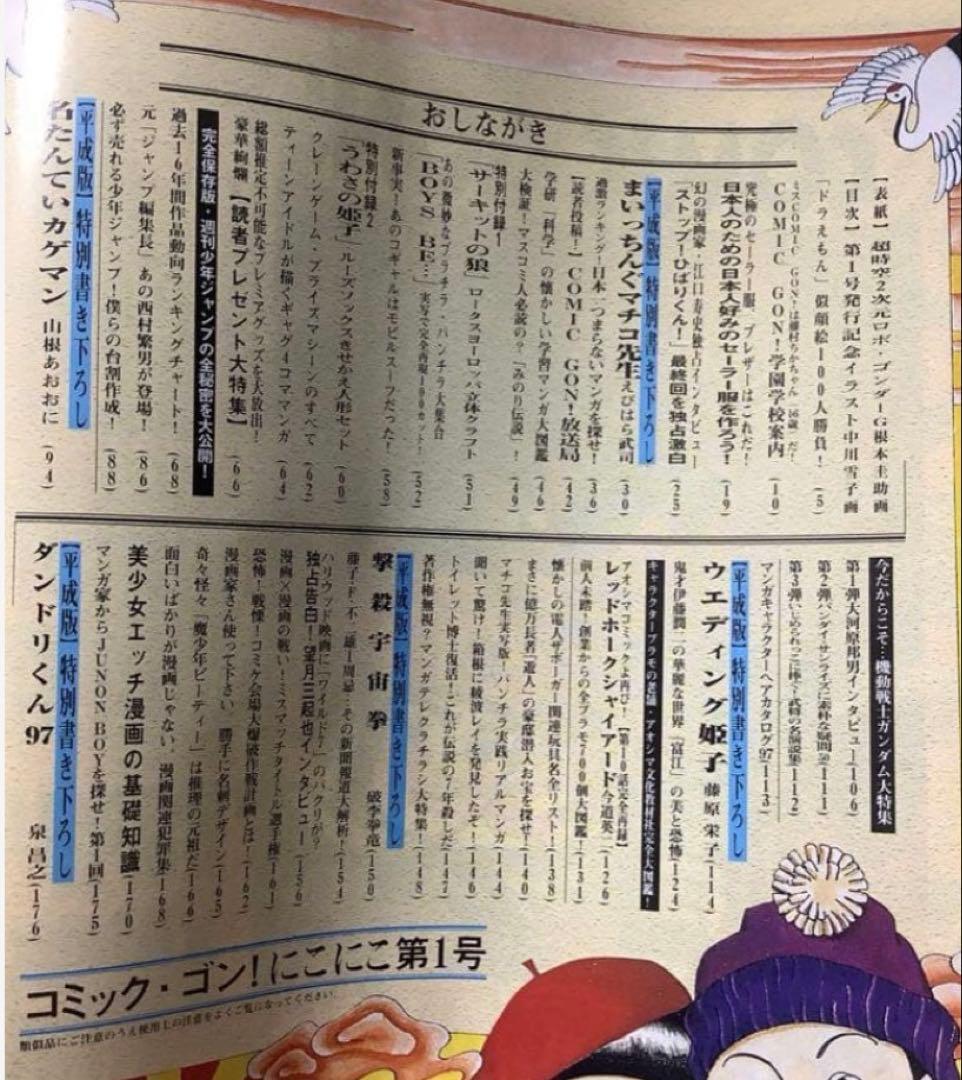 おしながき
【表紙】超時空2次元ロボ・ゴンダーG根本圭助画
【目次】第1号発行記念イラスト中川雪子画
「ドラえもん」似顔絵100人勝負！(5)
ミスCOMIC GON!は藤村ちかちゃん(16歳)だ！
COMIC GON!学園学校案内(10)
究極のセーラー服、ブレザーはこれだ！
日本人のための日本人好みのセーラー服を作ろう！(19)
幻の漫画家・江口寿史独占インタビュー
「ストップ!!ひばりくん！」最終回を独占激白(25)
【平成版】特別書き下ろし
まいっちんぐマチコ先生 えびはら武司(30)
過激ランキング！日本一つまらないマンガを探せ！(36)
【読者投稿！】COMIC GON!放送局(42)
学研「科学」の懐かしい学習マンガ大図鑑(46)
大検証！マスコミ人必読の？「みのり伝説」！(49)
特別付録1
「サーキットの狼」ロータスヨーロッパ立体クラフト(51)
あの微妙なブラチラ・パンチラ大集合
「BOYS BE…」実写で完全再現100カット！(52)
新事実！あのコギャルはモビルスーツだった！(58)
特別付録2
「うわさの姫子」ルーズソックスきせかえ人形セット(60)
クレーンゲーム・プライズマシーンのすべて(62)
ティーンアイドルが描くギャグ4コママンガ(64)
総額推定不可能なプレミアグッズを大放出！
豪華絢爛【読者プレゼント大特集】(66)
完全保存版・週刊少年ジャンプの全秘密を大公開！
過去16年間作品動向ランキングチャート！(68)
元「ジャンプ編集長」あの西村繁男が登場！(86)
必ず売れる少年ジャンプ！僕らの台割作成！(88)
【平成版】特別書き下ろし
名たんていカゲマン 山根あおおに(94)
今だからこそ…機動戦士ガンダム大特集
第1弾大河原邦男インタビュー(106)
第2弾バンダイ・サンライズに素朴な疑問50(111)
第3弾いじめられっこに捧ぐ！武器の名前解説集(112)
マンガキャラクターヘアカタログ97(113)
【平成版】特別書き下ろし
ウエディング姫子 藤原栄子(114)
鬼才伊藤潤二の華麗な世界「富江」の美と恐怖(124)
キャラクタープラモの老舗・アオシマ文化教材社完全大図鑑！
アオシマコミックよ再び！【第10話完全再録】
レッドホークシャイアード今道英一(126)
前人未踏！創業からの全プラモ700個大図鑑！(131)
懐かしの電人ザボーガー関連玩具名全リスト！(138)
まさに億万長者「遊人」の豪邸潜入お宝を探せ！(140)
マチコ先生実写版！パンチラ実践リアルマンガ(144)
聞いて驚け！箱根に綾波レイを発見したぞ！(146)
トイレット博士復活！これが伝説の7年殺しだ(147)
著作権無視？マンガテレクラチラシ大特集！(148)
【平成版】特別書き下ろし
撃殺宇宙拳 破李拳竜(150)
藤子・F・不二雄一周忌…その新聞報道大解析！(154)
ハリウッド映画に「ワイルド7」のパクリが？
独占告白！望月三起也インタビュー(156)
漫画×漫画の戦い！ミスマッチタイトル選手権(161)
恐怖！戦慄！コミケ会場大爆破作戦計画とは！(162)
漫画家さん使って下さい。勝手に名刺デザイン(165)
奇々怪々「魔少年ビーティー」は推理の元祖だ(166)
面白いばかりが漫画じゃない。漫画関連犯罪集(168)
美少女エッチ漫画の基礎知識(170)
マンガ家からJUNON BOYを探せ！第1回(175)
【平成版】特別書き下ろし
ダンドリくん97 泉昌之(176)
コミック・ゴン！にこにこ第1号
類似品にご注意のうえ使用上の注意をよくご覧になってください。